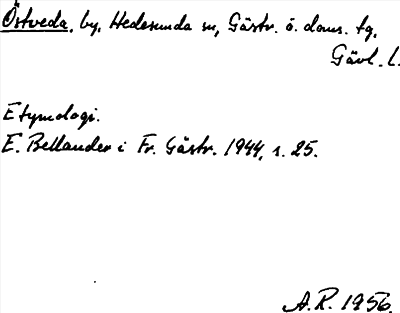 Östveda, by, Hedesunda sn, Gästr. ö. doms. tg,
Gävl. l.
Etymologi.
E. Bellander i Fr. Gästr. 1944, s. 25.
A.R. 1956.